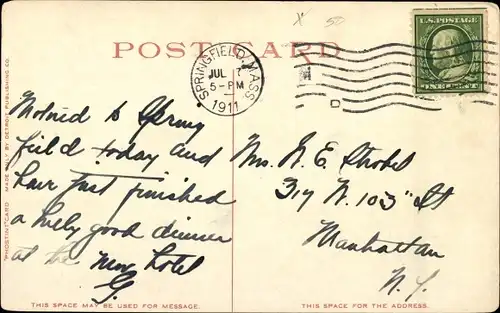 X 50
POST CARD
U.S. POSTAGE
ONE CENT
SPRINGFIELD, MASS.
JUL
5-PM
1911
Motored to Spring
field today and
have just finished
a lively good dinner
at the new hotel
G.
Mrs. N. E. Strobel
317 W. 103" St
Manhattan
N. Y.
"PHOSTINT" CARD MADE ONLY BY DETROIT PUBLISHING CO.
THIS SPACE MAY BE USED FOR MESSAGE.
THIS SPACE IS FOR THE ADDRESS.